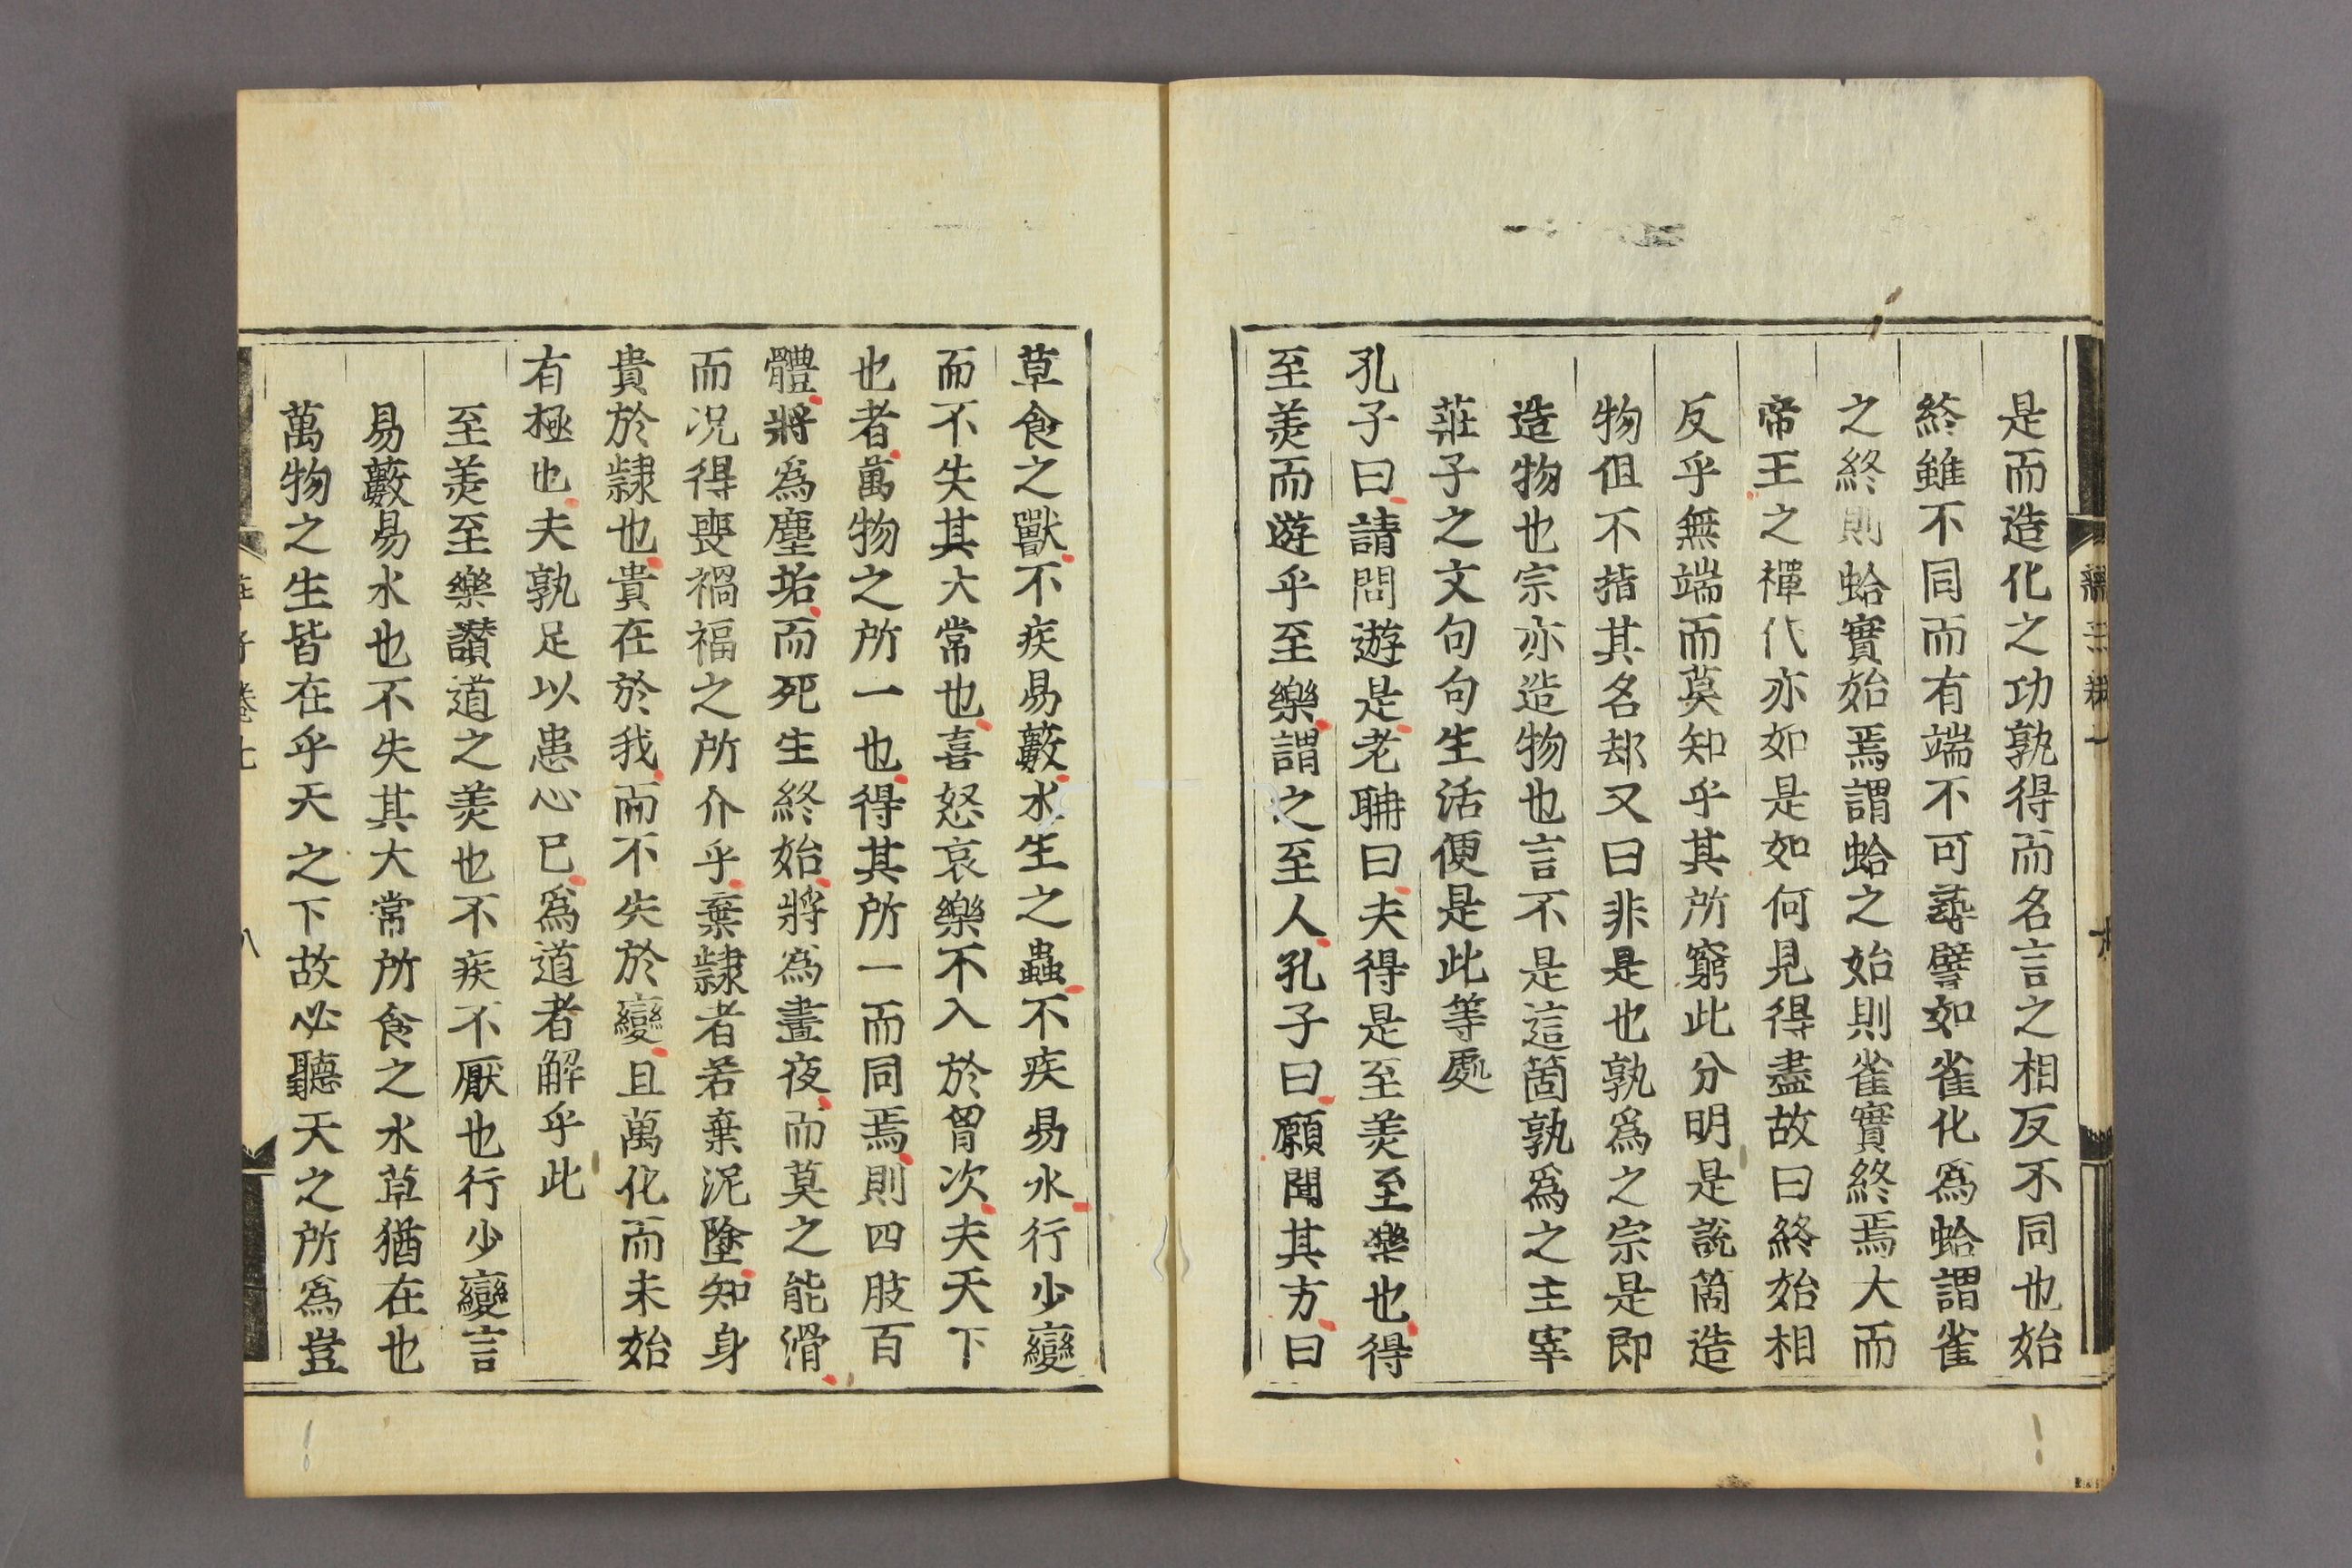 是而造化之功孰得而名言之相反不同也始
終雖不同而有端不可尋譬如雀化爲蛤謂雀
之終則蛤實始焉謂蛤之始則雀實終焉大而
帝王之禪代亦如是如何見得盡故曰終始相
反乎無端而莫知乎其所窮此分明是說箇造
物但不指其名却又曰非是也孰爲之宗是即
造物也宗亦造物也言不是這箇孰爲之主宰
莊子之文句句生活便是此等處
孔子曰請問遊是老聃曰夫得是至美至樂也得
至美而遊乎至樂謂之至人孔子曰願聞其方曰
草食之獸不疾易藪水生之蟲不疾易水行少變
而不失其大常也喜怒哀樂不入於胷次夫天下
也者萬物之所一也得其所一而同焉則四肢百
體將爲塵垢而死生終始將爲晝夜而莫之能滑
而况得喪禍福之所介乎棄隸者若棄泥塗知身
貴於隸也貴在於我而不失於變且萬化而未始
有極也夫孰足以患心已爲道者解乎此
至美至樂讚道之美也不疾不厭也行少變言
易藪易水也不失其大常所食之水草猶在也
萬物之生皆在乎天之下故必聽天之所爲豈